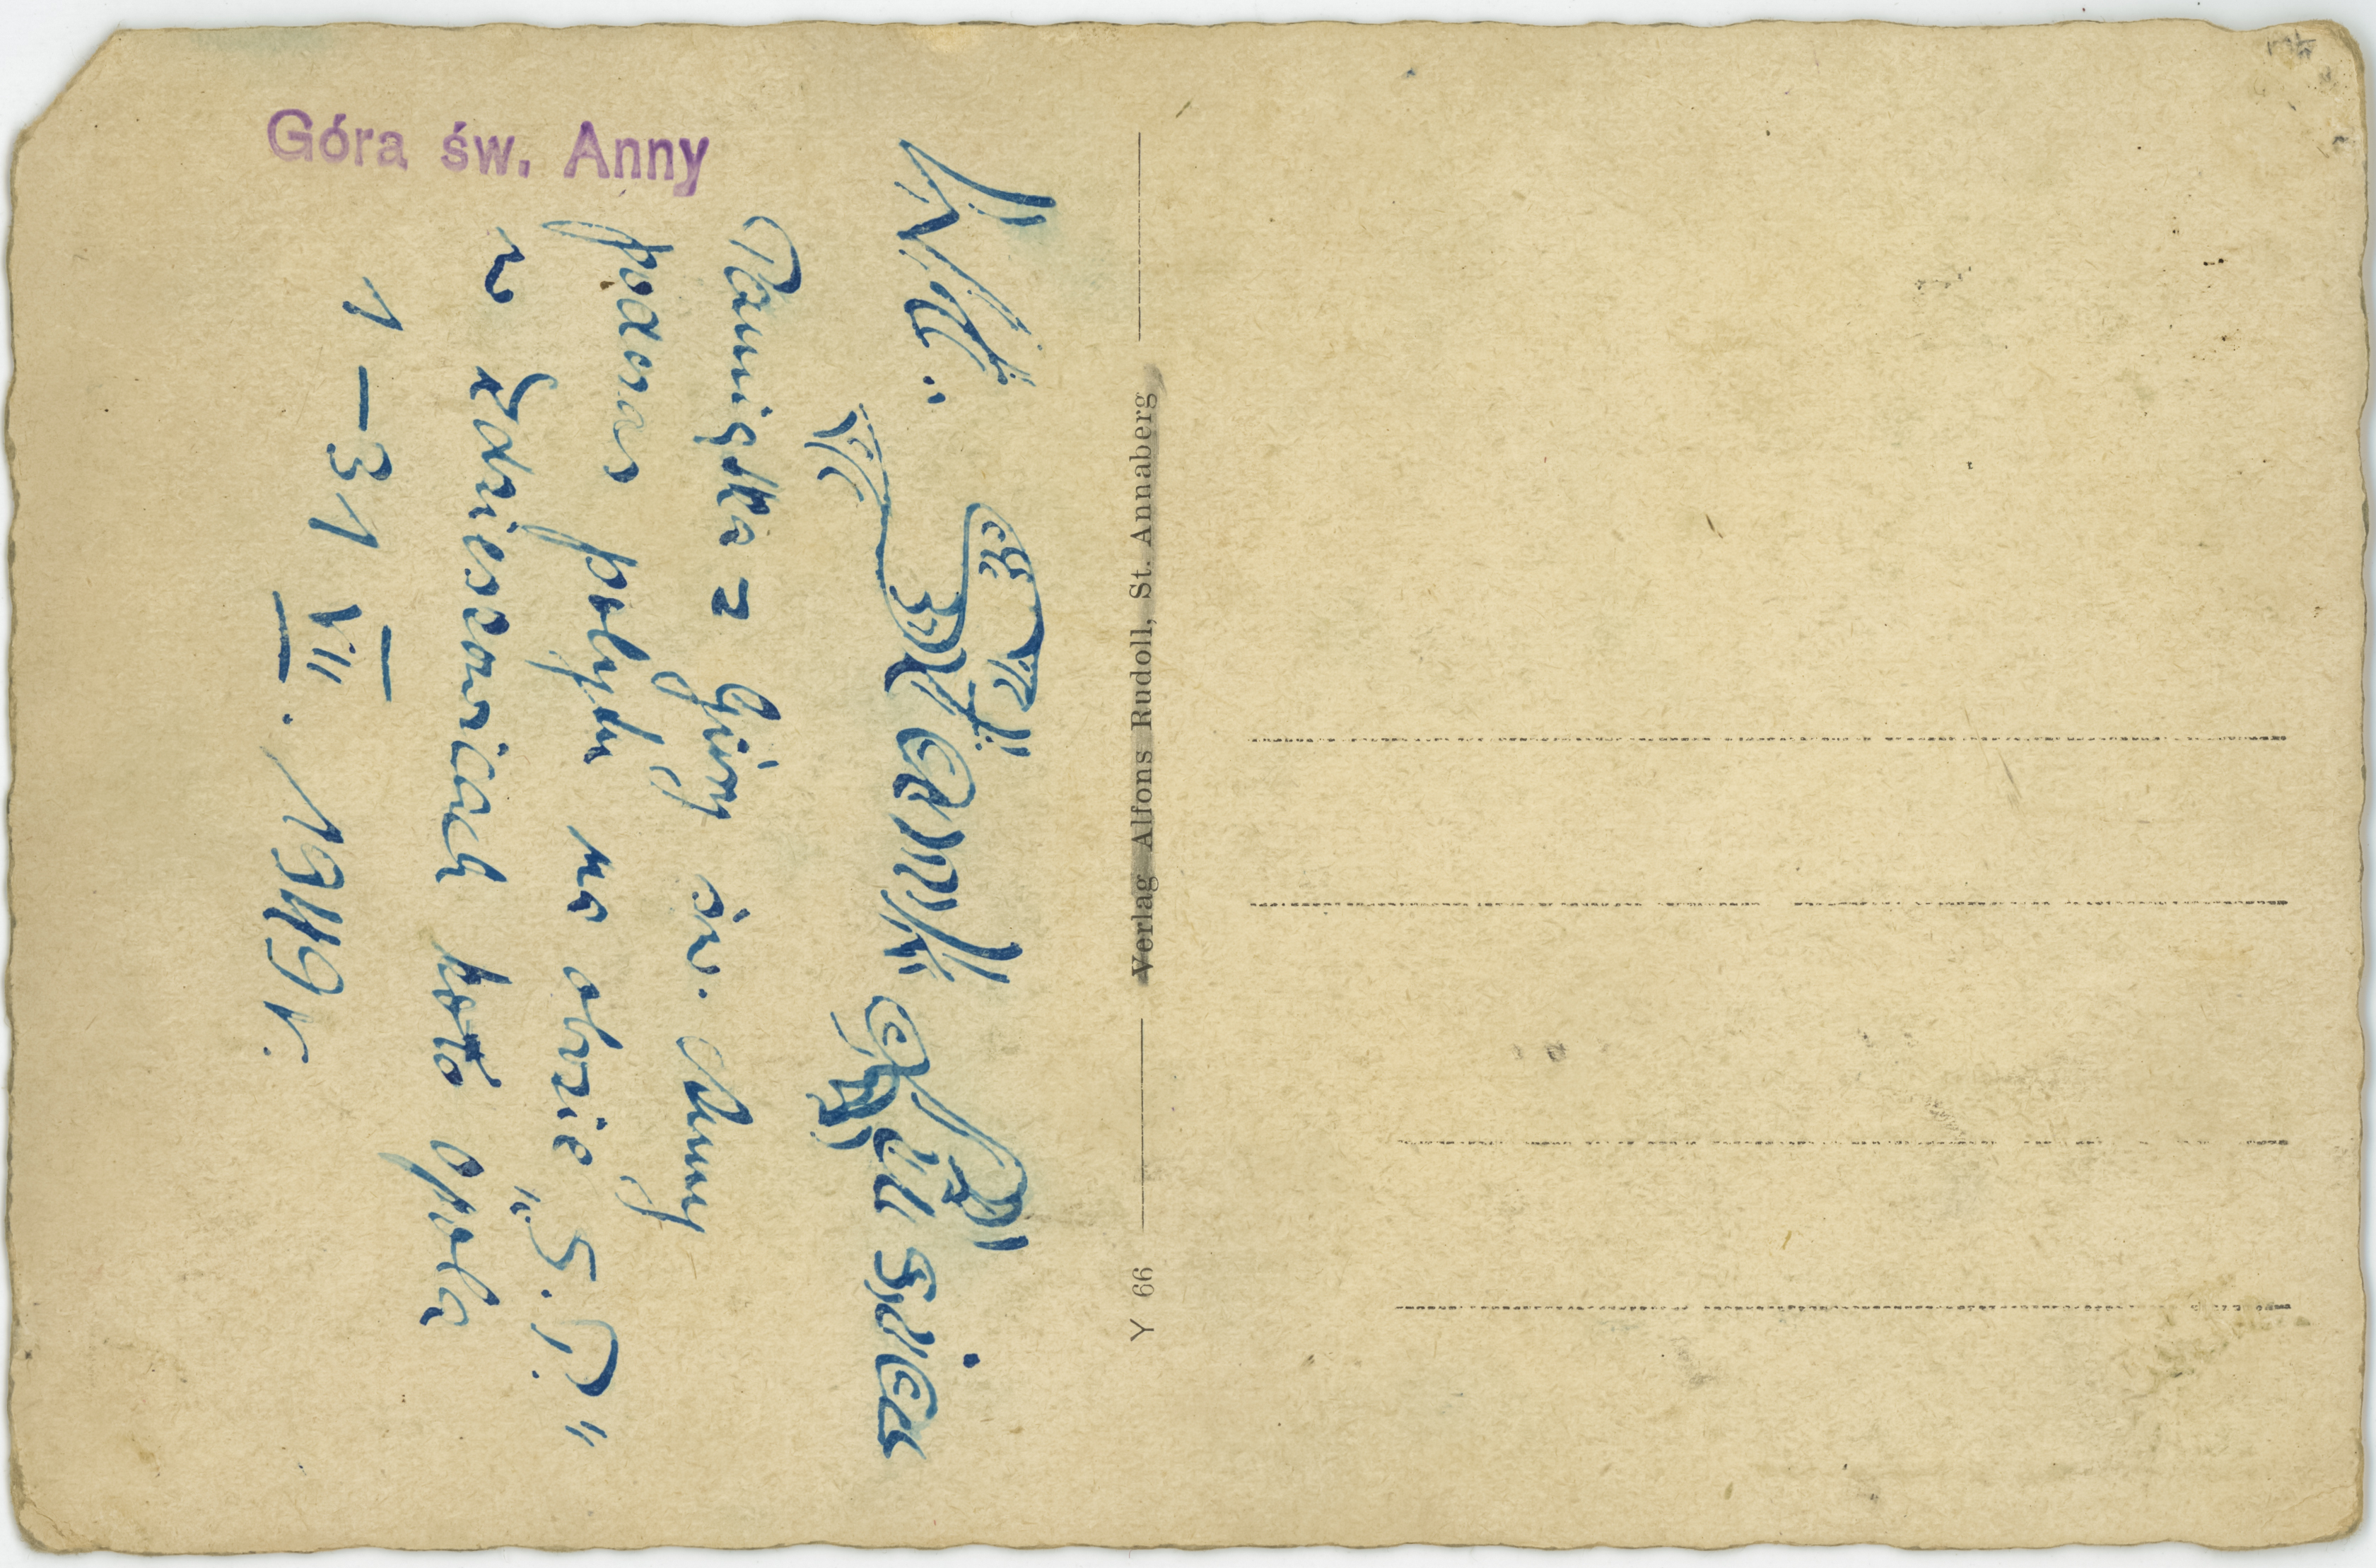 Góra św. Anny
Pamiątka z Góry św. Anny
podczas pobytu na obozie „S.P."
w Zdzieszowicach koło Opola
1–31 VII. 1949 r.
Verlag Alfons Rudoll, St. Annaberg
Y 66